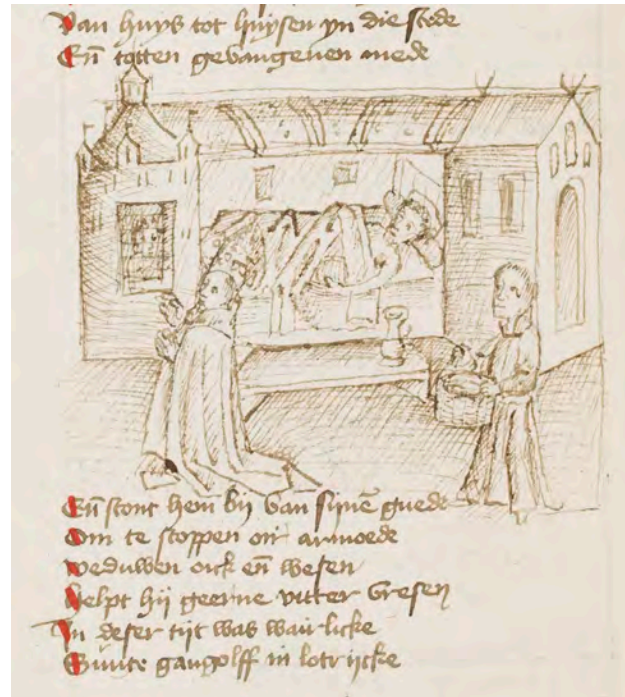 Van huys tot huysen yn die stede
En̄ totten gevangenen mede
En̄ stont hem bij van sijnē guede
Om te stoppen oir armoede
weduwen oick en̄ wesen
Helpt hij geerne vutter vresen
In deser tijt was wairlicke
Sunte gangolff in lotrijcke